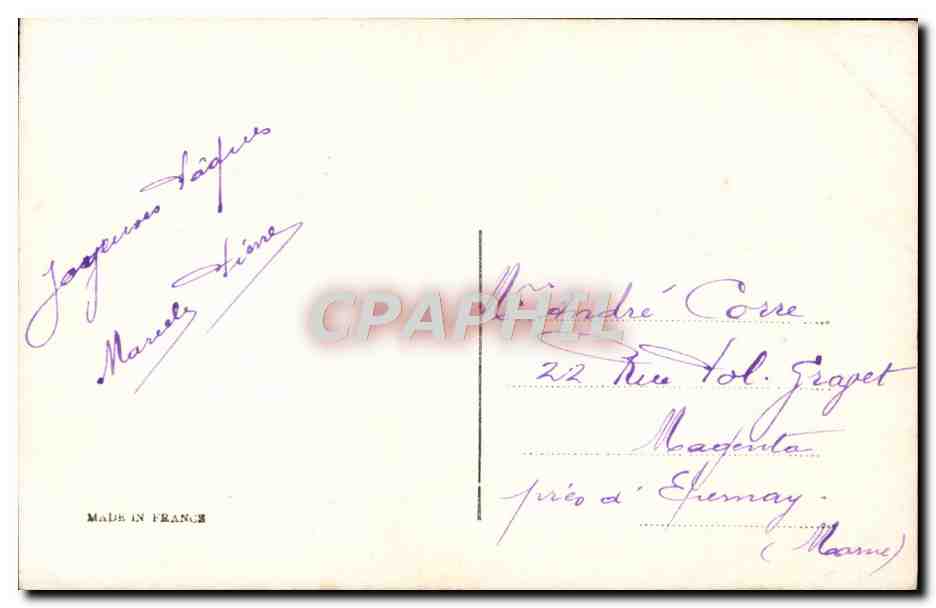 Joyeuses Pâques
Marcele Pierre
MADE IN FRANCE
CPAPHIL
André Corre
22 Rue Pol. Grapet
Magenta
près d' Epernay.
(Marne)